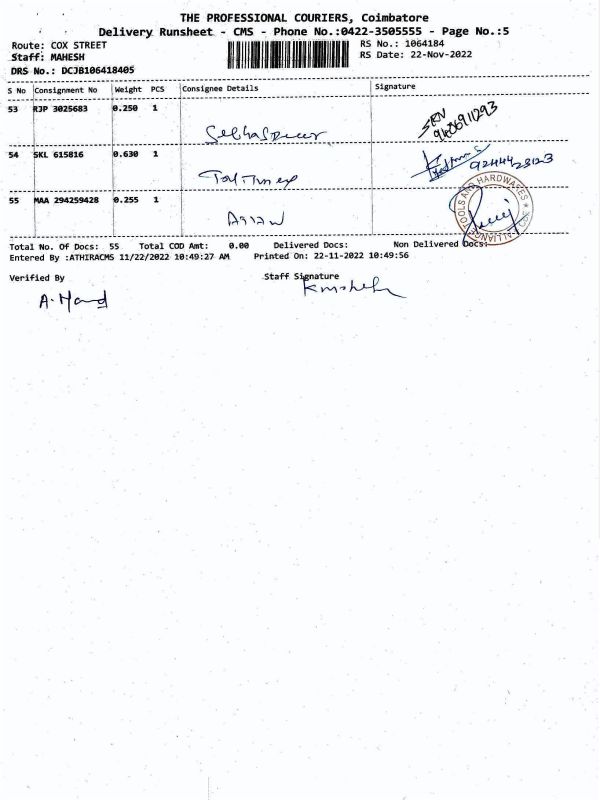 THE PROFESSIONAL COURIERS, Coimbatore
Delivery Runsheet - CMS - Phone No.:0422-3505555 - Page No.:5
Route: COX STREET
RS No.: 1064184
Staff: MAHESH
RS Date: 22-Nov-2022
DRS No.: DCJB106418405
S No Consignment No Weight PCS Consignee Details Signature
53 RJP 3025683 0.250 1
54 SKL 615816 0.630 1
55 MAA 294259428 0.255 1
TOOLS AND HARDWARES
Total No. Of Docs: 55 Total COD Amt: 0.00 Delivered Docs: Non Delivered Docs:
Entered By :ATHIRACMS 11/22/2022 10:49:27 AM Printed On: 22-11-2022 10:49:56
Verified By
Staff Signature